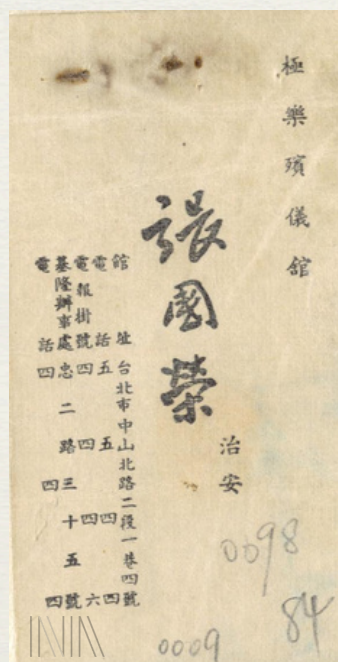 極樂殯儀館
治安
張國榮
館址 台北市中山北路二段一巷四號
電話 五五四四
電報掛號 四四四六
基隆辦事處 忠二路三十五號
電話 四四四
0098
84
0009